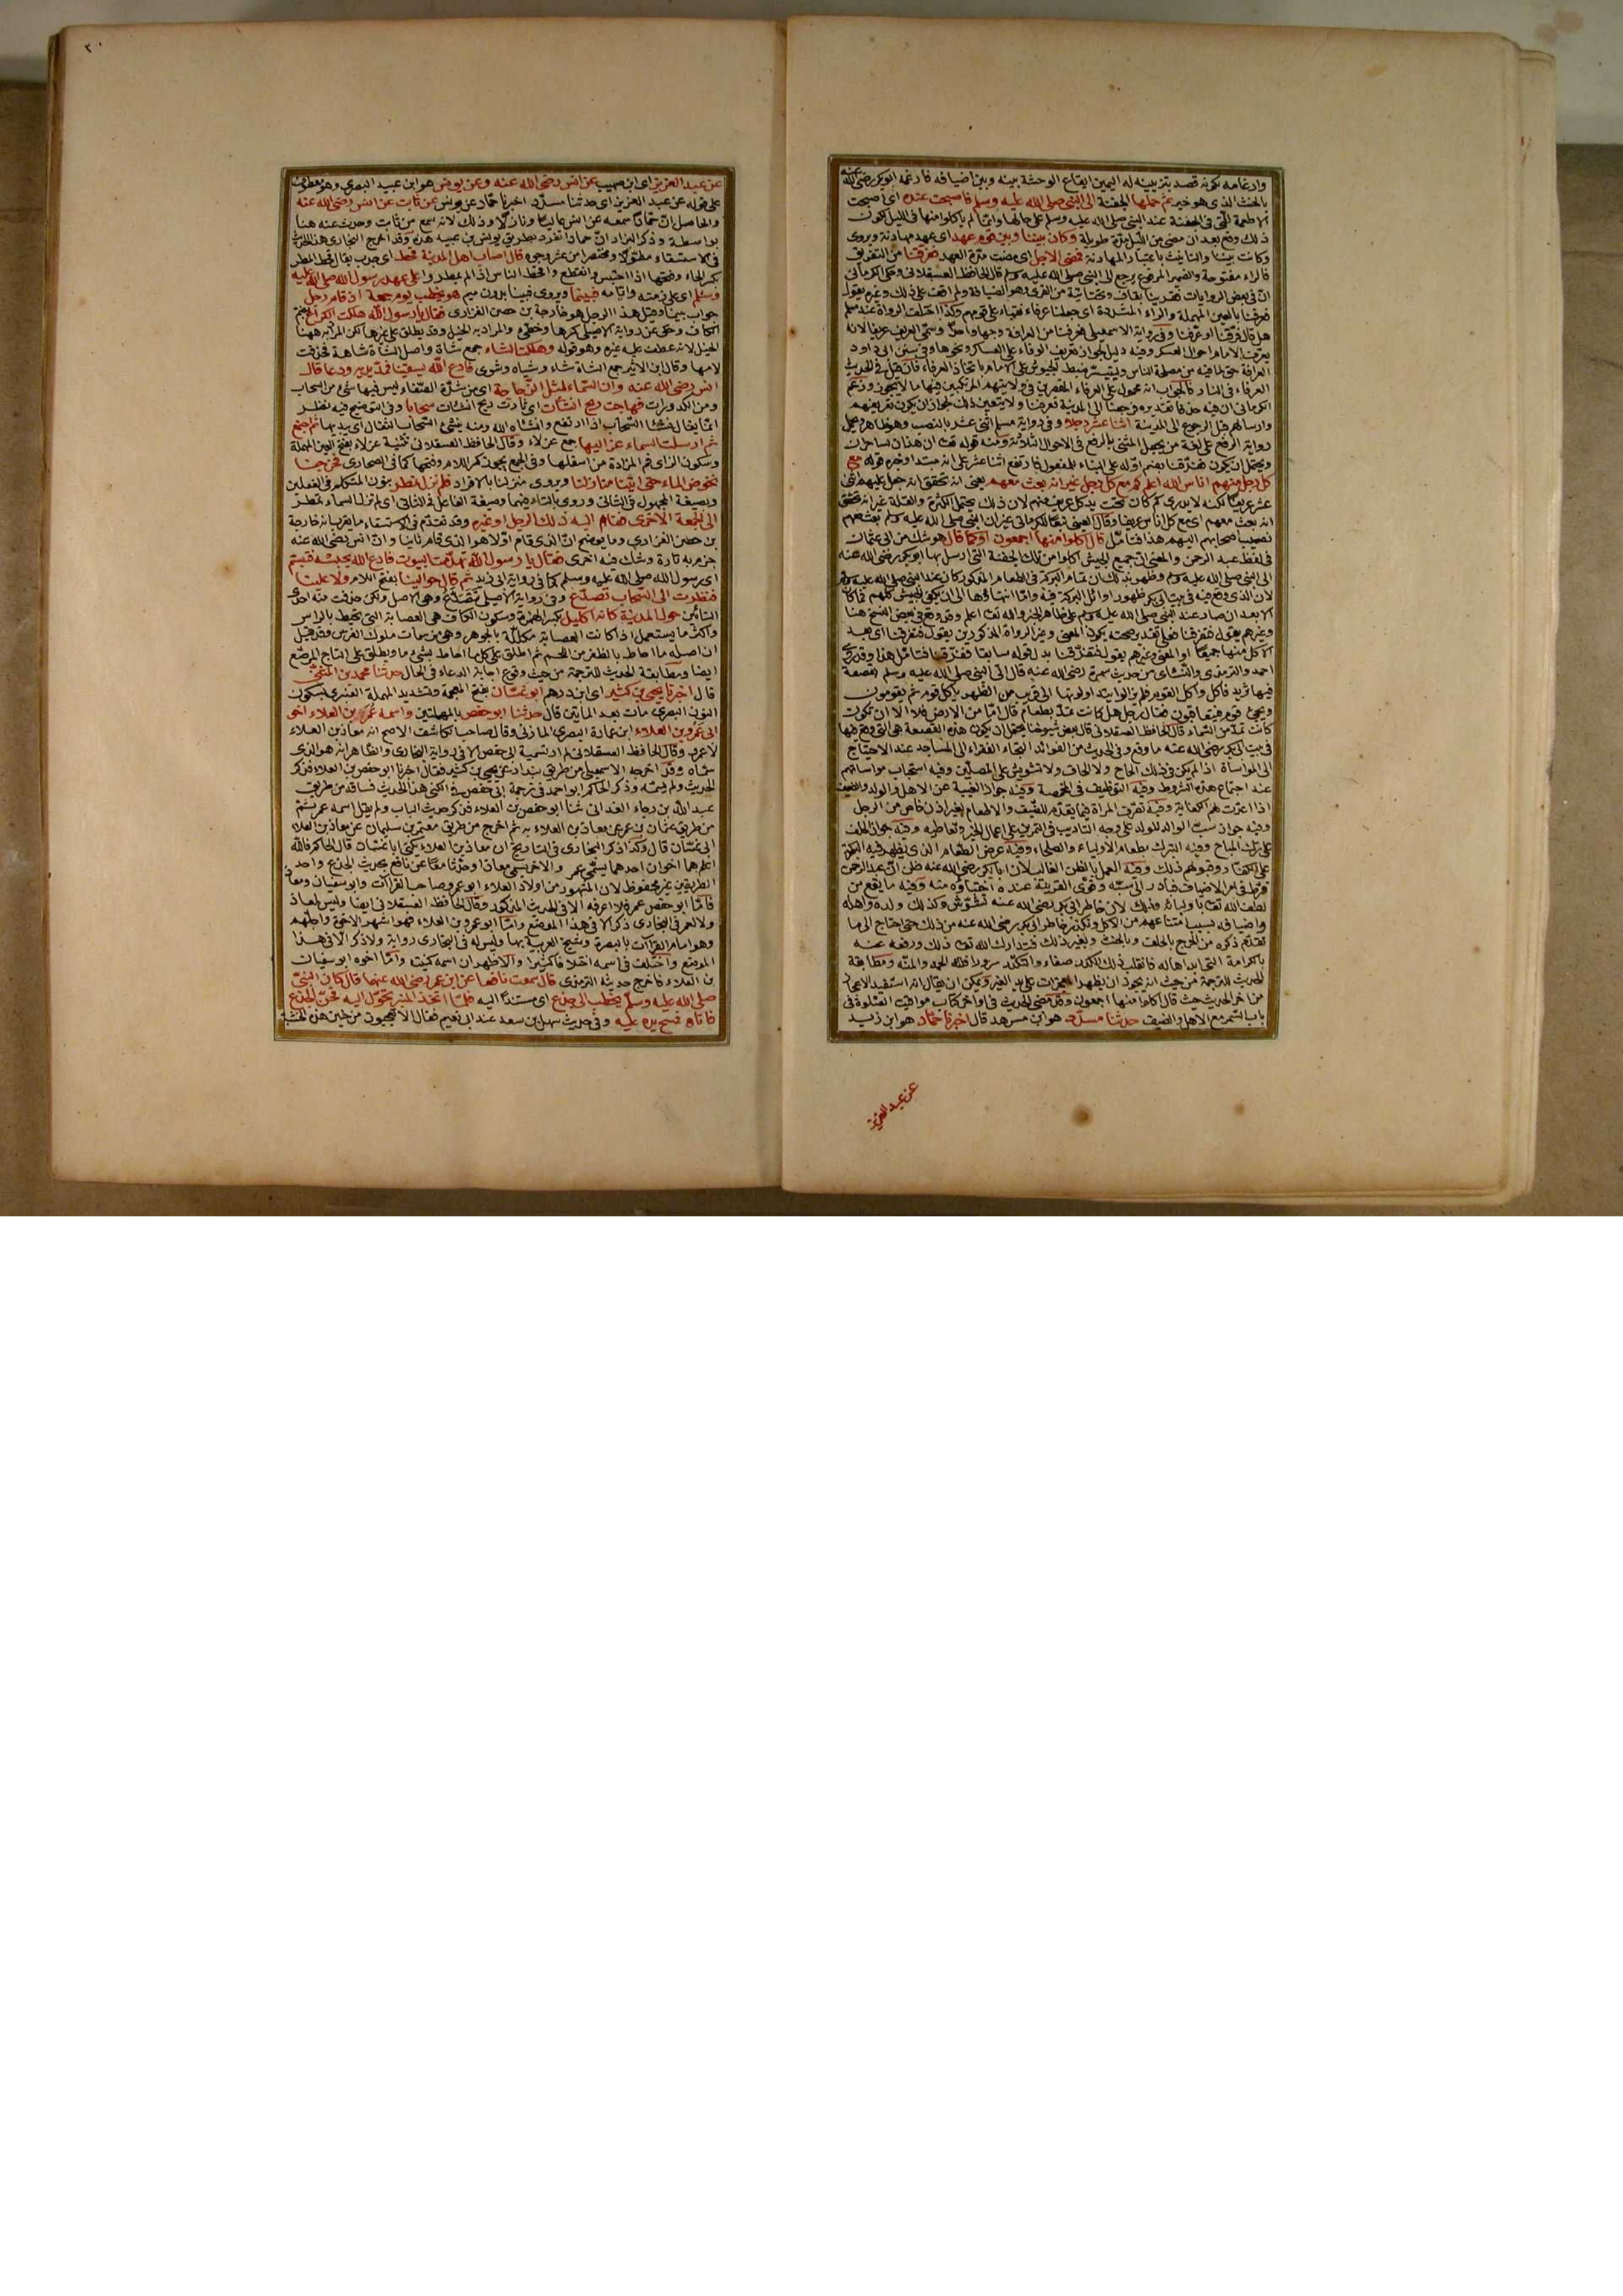 وارغامه كونه قصد بتزيينه له اليمين ايقاع الوحشة بينه وبين اضيافه فارغمه ابو بكر رضي الله عنه
بالحنث الذي هو خير ثم حملها الجفنة الى النبي صلى الله عليه وسلم فاصبحت عنده اى اصبحت
الاطعمة التي في الجفنة عند النبي صلى الله عليه وسلم على حالها وانما لم ياكلوا منها في الليل لكون
ذلك وقع بعد ان مضى من الليل مدة طويلة وكان بيننا وبين قوم عهد اى عهد مهادنة ويروى
وكانت بيننا والتانيث باعتبار المهادنة فمضى الاجل اى مضت مدة العهد فعرفنا من التفريق
فالراء مفتوحة والضمير المرفوع يرجع الى النبي صلى الله عليه وسلم قال الحافظ العسقلاني وحكى الكرماني
ان في بعض الروايات فقرينا بقاف وتحتانية من القرى وهو الضيافة ولم اقف على ذلك وغيره يقول
فعرفنا بالعين المهملة والراء المشددة اى جعلنا عرفاء نقباء على قومهم وكذا اختلف الرواة عند مسلم
هل قال فرقنا او عرفنا وفي رواية الاسمعيلي فعرفنا من العرافة وجها واحدا وسمى العريف عريفا لانه
يعرف الامام احوال العسكر وفيه دليل لجواز تعريف العرفاء على العساكر ونحوها وفي سنن ابي داود
العرافة حق لما فيه من مصلحة الناس وليتيسر ضبط الجيوش على الامام باتخاذ العرفاء فان قيل في الحديث
العرفاء في النار فالجواب انه محمول على العرفاء المقصرين في ولايتهم المرتكبين فيها ما لا يجوز وزعم
الكرماني ان فيه حذفا تقديره فرجعنا الى المدينة فعرفنا ولا يتعين ذلك لجواز ان يكون تعريفهم
وارسالهم قبل الرجوع الى المدينة اثنا عشر رجلا وفي رواية مسلم اثني عشر بالنصب وهو ظاهر وتحمل
رواية الرفع على لغة من يجعل المثنى بالرفع في الاحوال الثلاثة ومنه قوله تعالى ان هذان لساحران
ويحتمل ان يكون فعرفنا بضم اوله على البناء للمفعول فارتفع اثنا عشر على انه مبتدا وخبره قوله مع
كل رجل منهم اناس الله اعلم كم مع كل رجل غير انه بعث معهم يعني انه تحقق انه جعل عليهم اثني
عشر عريفا لكنه لا يدري كم كان تحت يد كل عريف منهم لان ذلك يحتمل الكثرة والقلة غير انه تحقق
انه بعث معهم اى مع كل اناس عريفا وقال العيني تبعا للكرماني غير ان النبي صلى الله عليه وسلم بعث معهم
نصيب اصحابهم اليهم هذا فتامل قال اكلوا منها اجمعون او كما قال هو شك من ابي عثمان
في لفظ عبد الرحمن والمعنى ان جميع الجيش اكلوا من تلك الجفنة التي ارسل بها ابو بكر رضي الله عنه
الى النبي صلى الله عليه وسلم وظهر بذلك ان تمام البركة في الطعام المذكور كان عند النبي صلى الله عليه وسلم
لان الذي وقع فيه في بيت ابي بكر ظهور اوائل البركة فيه واما انتهاؤها الى ان يكفي الجيش كلهم فما كان
الا بعد ان صار عند النبي صلى الله عليه وسلم على ظاهر الخبر والله تعالى اعلم وقد وقع في بعض النسخ هنا
وغيرهم يقول فتفرقنا فعلى تقدير صحته يكون المعنى وغير الرواة المذكورين يقول فتفرقنا اى بعد
الاكل منها جميعا او المعنى وغيرهم يقول فتفرقنا بدل قوله سابقا ففرقنا فتامل هذا وقد روى
احمد والترمذي والنسائي من حديث سمرة رضي الله عنه قال اتى النبي صلى الله عليه وسلم بقصعة
فيها ثريد فاكل واكل القوم فلم يزالوا يتداولونها الى قريب من الظهر ياكل قوم ثم يقومون
ويجئ قوم فيتعاقبون فقال رجل هل كانت تمد بطعام قال اما من الارض فلا الا ان تكون
كانت تمد من السماء قال الحافظ العسقلاني قال بعض شيوخنا يحتمل ان يكون هذه القصعة هي التي وقع فيها
في بيت ابي بكر رضي الله عنه ما وقع وفي الحديث من الفوائد التجاء الفقراء الى المساجد عند الاحتياج
الى المواساة اذا لم يكن في ذلك الحاح ولا الحاف ولا تشويش على المصلين وفيه استحباب مواساتهم
عند اجتماع هذه الشروط وفيه التوظيف في المخمصة وفيه جواز الغيبة عن الاهل والولد والضيف
اذا اعدت لهم الكفاية وفيه تصرف المراة فيما يقدم للضيف والاطعام بغير اذن خاص من الرجل
وفيه جواز سب الوالد للولد على وجه التاديب في التمرين على اعمال الخير وتعاطيه وفيه جواز الحلف
على ترك المباح وفيه التبرك بطعام الاولياء والصلحاء وفيه عرض الطعام الذي يظهر فيه البركة
على الكبار وقبولهم ذلك وفيه العمل بالظن الغالب لان ابا بكر رضي الله عنه ظن ان عبد الرحمن
فرط في امر الاضياف فبادر الى سبه وقوى القرينة عنده اختباؤه منه وفيه ما يقع من
لطف الله تعالى باوليائه وذلك لان خاطر ابي بكر رضي الله عنه تشوش وكذلك ولده واهله
واضيافه بسبب امتناعهم من الاكل وتكدر خاطر ابي بكر رضي الله عنه من ذلك حتى احتاج الى ما
تقدم ذكره من الحرج بالحلف وبالحنث وبغير ذلك فتدارك الله تعالى ذلك ورفعه عنه
بالكرامة التي ابداها له فانقلب ذلك الكدر صفاء والنكد سرورا فلله الحمد والمنة ومطابقة
الحديث للترجمة من حيث انه يجوز ان يظهر المعجزات على يد الغير ويمكن ان يقال انه استفيد الاعجاز
من اخر الحديث حيث قال اكلوا منها اجمعون وقد مضى الحديث في اواخر كتاب مواقيت الصلوة في
باب السمر مع الاهل والضيف حدثنا مسدد هو ابن مسرهد قال اخبرنا حماد هو ابن زيد
عن عبد العزيز
٢٠
عن عبد العزيز اى ابن صهيب عن انس رضي الله عنه وعن يونس هو ابن عبيد البصري وهو معطوف
على قوله عن عبد العزيز اى حدثنا مسدد اخبرنا حماد عن يونس عن ثابت عن انس رضي الله عنه
والحاصل ان حمادا سمعه عن انس عاليا ونازلا وذلك لانه سمع من ثابت وحدث عنه هنا
بواسطة وذكر البزار ان حمادا تفرد بطريق يونس بن عبيد هذه وقد اخرج البخاري هذا الحديث
في الاستسقاء مطولا ومختصرا من عشر وجوه قال اصاب اهل المدينة قحط اى جدب يقال قحط المطر
بكسر الحاء وفتحها اذا احتبس وانقطع واقحط الناس اذا لم يمطروا على عهد رسول الله صلى الله عليه
وسلم اى على زمنه وايامه فبينما ويروى فبينا بدون ميم هو يخطب يوم جمعة اذ قام رجل
جواب بينما وقيل هذا الرجل هو خارجة بن حصن الفزاري فقال يا رسول الله هلكت الكراع بضم
الكاف وحكى عن رواية الاصيلي كسرها وخطئ والمراد به الخيل وقد يطلق على غيرها لكن المراد به ههنا
الخيل لانه عطف عليه غيره وهو قوله وهلكت الشاء جمع شاة واصل الشاة شاهة فحذفت
لامها وقال ابن الاثير جمع الشاة شاء وشياه وشوى فادع الله يسقينا فمد يديه ودعا قال
انس رضي الله عنه وان السماء لمثل الزجاجة اى من شدة الصفاء ليس فيها شيء من السحاب
ومن الكدورات فهاجت ريح انشات اى ثارت ريح انشات سحابا وفي التوضيح فيه نظر
انما يقال نشأ السحاب اذا ارتفع وانشاه الله ومنه ينشئ السحاب الثقال اى يبديها ثم اجتمع
ثم ارسلت السماء عزاليها جمع عزلاء وقال الحافظ العسقلاني تثنية عزلاء بفتح العين المهملة
وسكون الزاى فم المزادة من اسفلها وفي الجمع يجوز كسر اللام وفتحها كما في الصحارى فخرجنا
نخوض الماء حتى اتينا منازلنا ويروى منزلنا بالافراد فلم نزل نمطر بنون المتكلم في الفعلين
وبصيغة المجهول في الثاني وروى بالتاء فيهما وصيغة الفاعل في الثاني اى لم تزل السماء تمطر
الى الجمعة الاخرى فقام اليه ذلك الرجل او غيره وقد تقدم في الاستسقاء ما يقرب انه خارجة
بن حصن الفزاري وما يوضح ان الذي قام اولا هو الذي قام ثانيا وان انس رضي الله عنه
جزم به تارة وشك فيه اخرى فقال يا رسول الله تهدمت البيوت فادع الله يحبسه فتبسم
اى رسول الله صلى الله عليه وسلم كما في رواية ابي ذر ثم قال حوالينا بفتح اللام ولا علينا
فنظرت الى السحاب تصدع وفي رواية الاصيلي تتصدع وهي الاصل ولكن حذفت منه احدى
التائين حول المدينة كانه اكليل بكسر الهمزة وسكون الكاف هي العصابة التي تحيط بالراس
واكثر ما يستعمل اذا كانت العصابة مكللة بالجوهر وهي من سمات ملوك الفرس وقد قيل
ان اصله ما احاط بالظفر من اللحم ثم اطلق على كل ما احاط بشيء ما ويطلق على التاج المرصع
ايضا ومطابقة الحديث للترجمة من حيث وقوع اجابة الدعاء في الحال حدثنا محمد بن المثنى
قال اخبرنا يحيى بن كثير اى ابن درهم ابو غسان بفتح المعجمة وتشديد المهملة العنبري بسكون
النون البصري مات بعد المايتين قال حدثنا ابو حفص بالمهملتين واسمه عمر بن العلاء اخو
ابي عمرو بن العلاء ابن عمارة البصري المازني وقال صاحب الكاشف الاصح انه معاذ بن العلاء
لا عمر وقال الحافظ العسقلاني لم ار تسمية ابي حفص الا في رواية البخاري والظاهر انه هو الذي
سماه وقد اخرجه الاسمعيلي من طريق بندار عن يحيى بن كثير فقال اخبرنا ابو حفص بن العلاء فذكر
الحديث ولم يسمه وذكر الحاكم ابو احمد في ترجمة ابي حفص في الكنى هذا الحديث فساقه من طريق
عبد الله بن رجاء الغداني ثنا ابو حفص بن العلاء فذكر حديث الباب ولم يقل اسمه عمر ثم
من طريق عثمان بن عمر عن معاذ بن العلاء به ثم اخرج من طريق معتمر بن سليمان عن معاذ بن العلاء
ابي غسان قال وكذا ذكر البخاري في التاريخ ان معاذ بن العلاء يكنى ابا غسان قال الحاكم فالله
اعلم هما اخوان احدهما يسمى عمر والاخر يسمى معاذ او حدثا معا عن نافع بحديث الجذع واحد
الطريقين غير محفوظ لان المشهور من اولاد العلاء ابو عمرو صاحب القراآت وابو سفيان ومعاذ
فاما ابو حفص عمر فلا اعرفه الا في الحديث المذكور وقال الحافظ العسقلاني ايضا وليس لمعاذ
ولا لعمر في البخاري ذكر الا في هذا الموضع واما ابو عمرو بن العلاء فهو اشهر الاخوة واجلهم
وهو امام القراآت بالبصرة وشيخ العربية بها وليس له في البخاري رواية ولا ذكر الا في هذا
الموضع واختلف في اسمه اختلافا كثيرا والاظهر ان اسمه كنيته واما اخوه ابو سفيان
بن العلاء فاخرج حديثه الترمذي قال سمعت نافعا عن ابن عمر رضي الله عنهما قال كان النبي
صلى الله عليه وسلم يخطب الى جذع اى مستندا اليه فلما اتخذ المنبر تحول اليه فحن الجذع
فاتاه فمسح يده عليه وفي حديث سهل بن سعد عند ابي نعيم فقال الا تعجبون من حنين هذه الخشبة